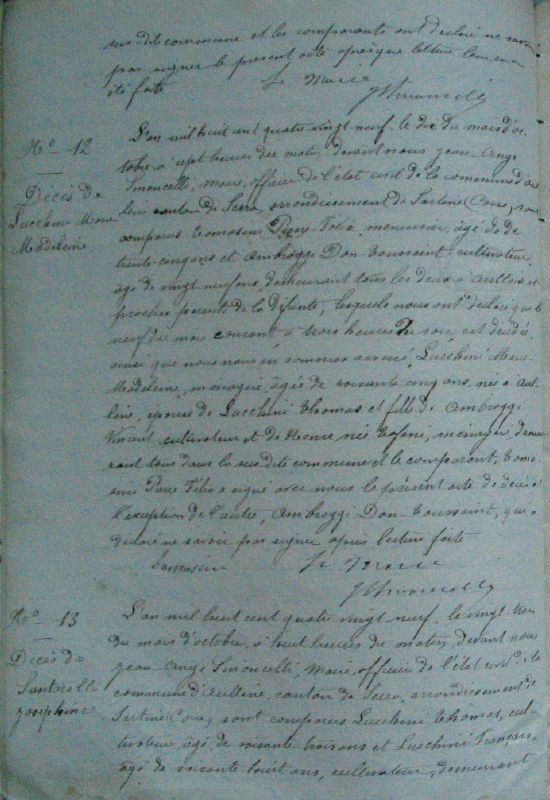 sus dite commune et les comparants ont déclaré ne savoir
pas signer le present acte apres que lecture leur en a
été faite
Le Maire
JASimoncelli
N° 12
Décès de
Lucchini Marie
Madeleine
L'an mil huit cent quatre vingt-neuf, le dix du mois d'oc-
tobre à sept heures du matin devant nous Jean-Ange
Simoncelli, Maire, officier de l'état civil de la commune d'Aul
lène canton de Serra, arrondissement de Sartène (Corse), sont
comparus Tomasini Pierre-Felix, menuisier, âgé de
trente-cinq ans et Ambroggi Don Toussaint, cultivateur,
âgé de vingt neuf ans, demeurant tous les deux à Aullène et
proches parents de la défunte, lesquels nous ont déclaré que le
neuf du mois courant à trois heures du soir, est décédée
ainsi que nous nous en sommes assuré, Lucchini Marie-
Madeleine, ménagère, âgée de soixante cinq ans, née à Aul-
lène, épouse de Lucchini Thomas et fille de Ambroggi
Vincent cultivateur et de Nonce née Tafani, ménagère demeu
rant tous dans la sus dite commune et le comparant, Toma
sini Pierre Felix a signé avec nous le présent acte de décès à
l'exception de l'autre, Ambroggi Don Toussaint, qui a
déclaré ne savoir pas signer après lecture faite
Tomasini Le Maire
JASimoncelli
N° 13
Décès de
Santarelli
Josephine
L'an mil huit cent quatre vingt neuf, le vingt trois
du mois d'octobre, à huit heures du matin, devant nous
Jean Ange Simoncelli, Maire, officier de l'état civil de la
commune d'Aullène, canton de Serra, arrondissement de
Sartène (Corse), sont comparus Lucchini Thomas, cul-
tivateur, âgé de soixante trois ans et Lucchini François,
âgé de soixante huit ans, cultivateur, demeurant